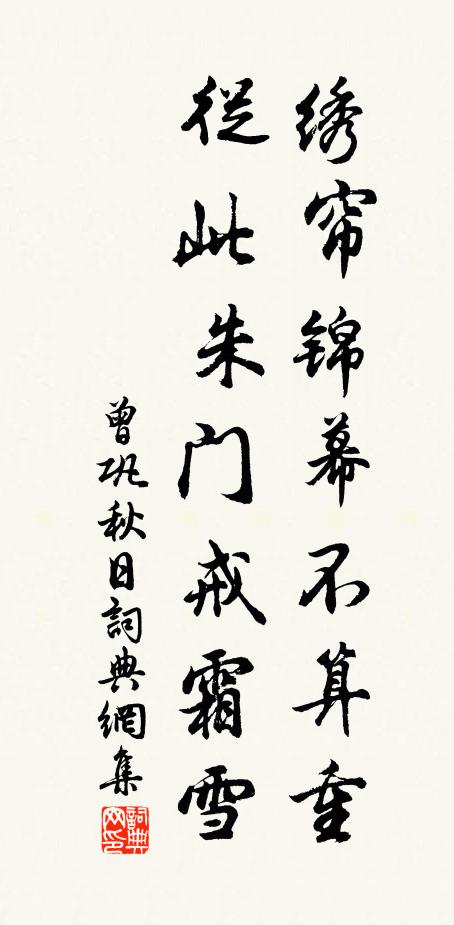 绣帘锦幕不算重
從此朱門戒霜雪
曾巩秋日詞典網集
詞典
网印